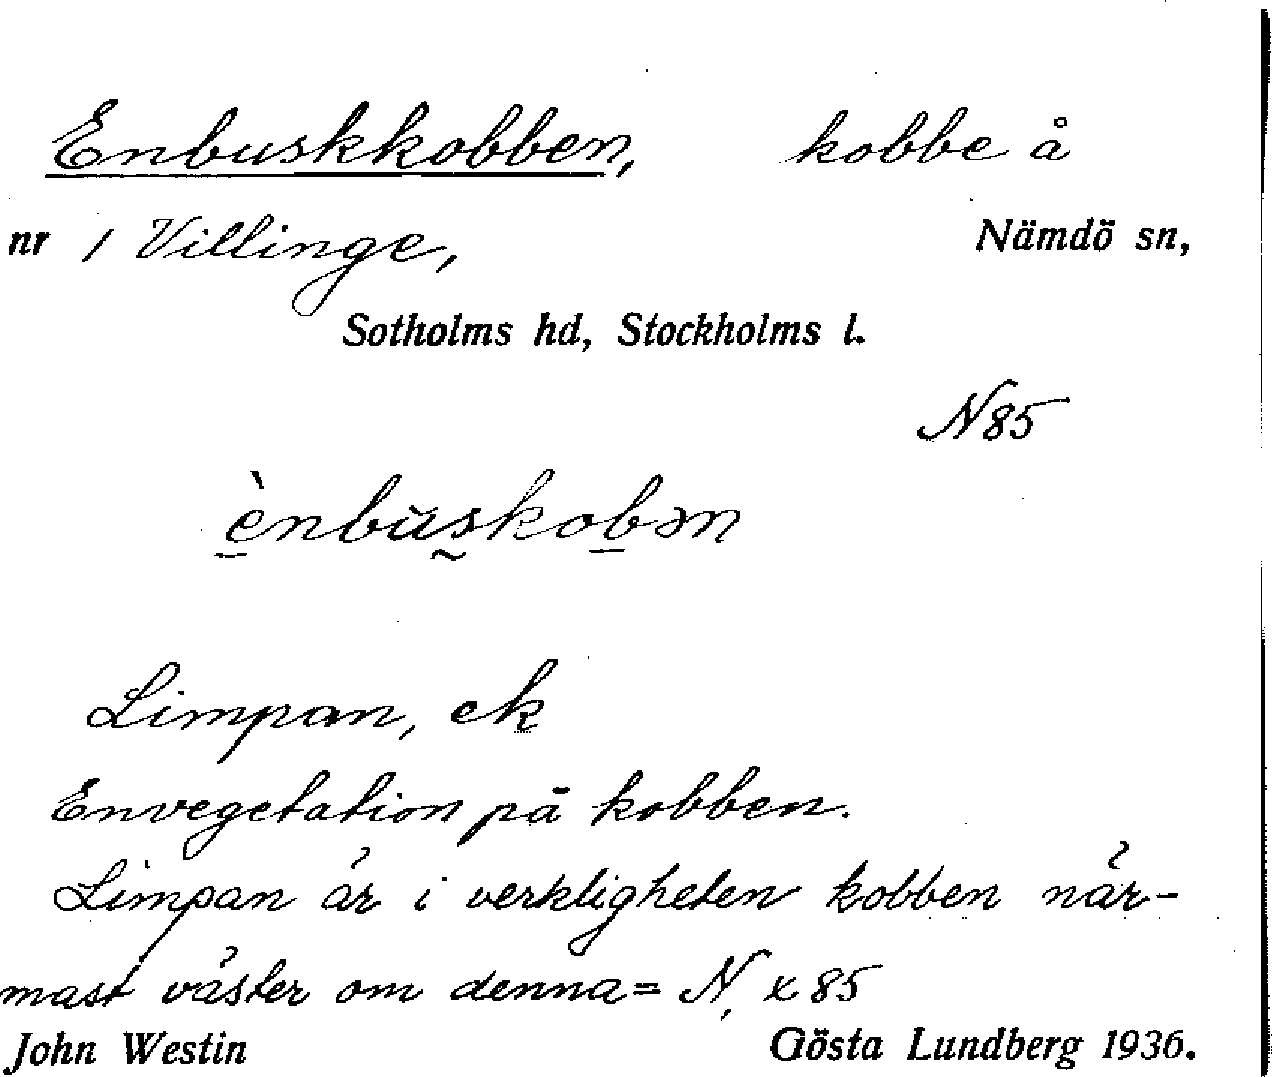 Enbuskkobben, kobbe å
nr 1 Villinge, Nämdö sn,
Sotholms hd, Stockholms l.
N85
ènbùskobən
Limpan, ek
Envegetation på kobben.
Limpan är i verkligheten kobben när-
mast väster om denna = N, x 85
John Westin Gösta Lundberg 1936.